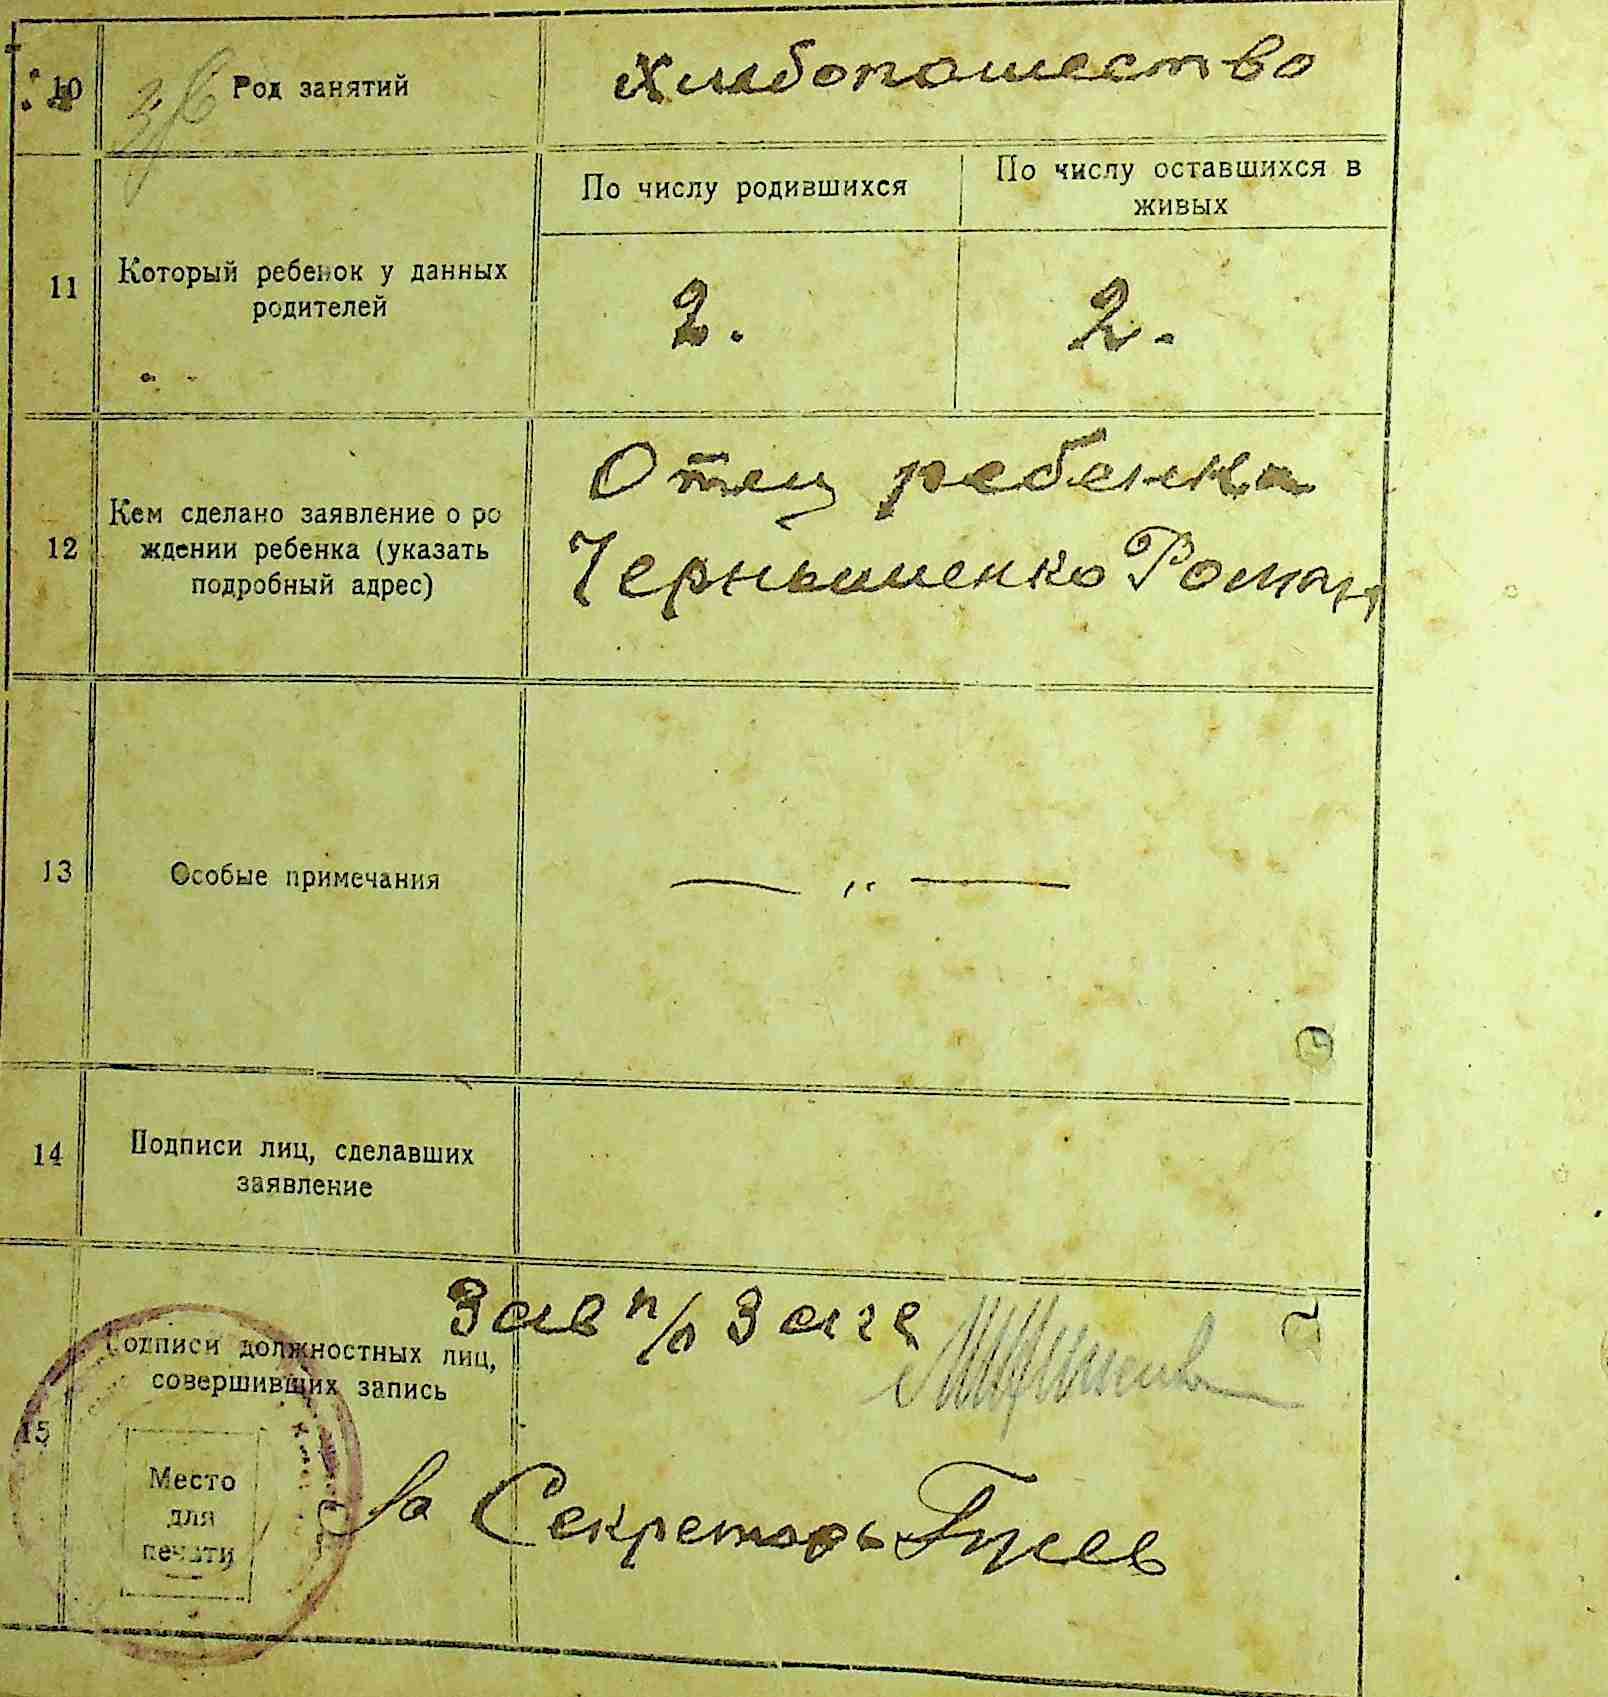 10
Род занятий
Хлебопашество
11
Который ребенок у данных
родителей
По числу родившихся
По числу оставшихся в
живых
2.
2.
12
Кем сделано заявление о ро
ждении ребенка (указать
подробный адрес)
Отец ребенка
Чернышенко Роман
13
Особые примечания
— „ —
14
Подписи лиц, сделавших
заявление
15
Подписи должностных лиц,
совершивших запись
Место
для
печати
Зав п/о Загс
За Секретарь Гусев